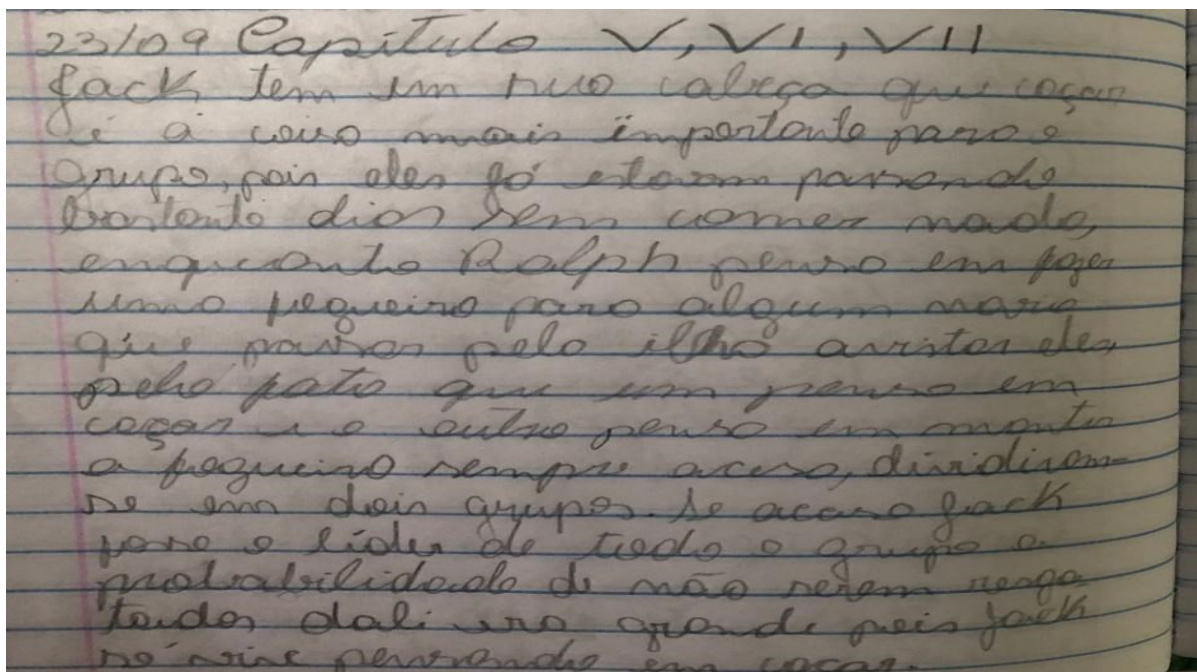 23/09 Capítulo V, VI, VII
Jack tem em sua cabeça que caçar
é a coisa mais importante para o
grupo, pois eles já estavam passando
bastante dias sem comer nada,
enquanto Ralph pensa em fazer
uma fogueira para algum navio
que passar pela ilha avistar eles,
pelo fato que um pensa em
caçar e o outro pensa em manter
a fogueira sempre acesa, dividiram-
se em dois grupos. Se acaso Jack
fosse o líder de todo o grupo a
probabilidade de não serem resga
tados dali era grande pois Jack
só vive pensando em caçar.